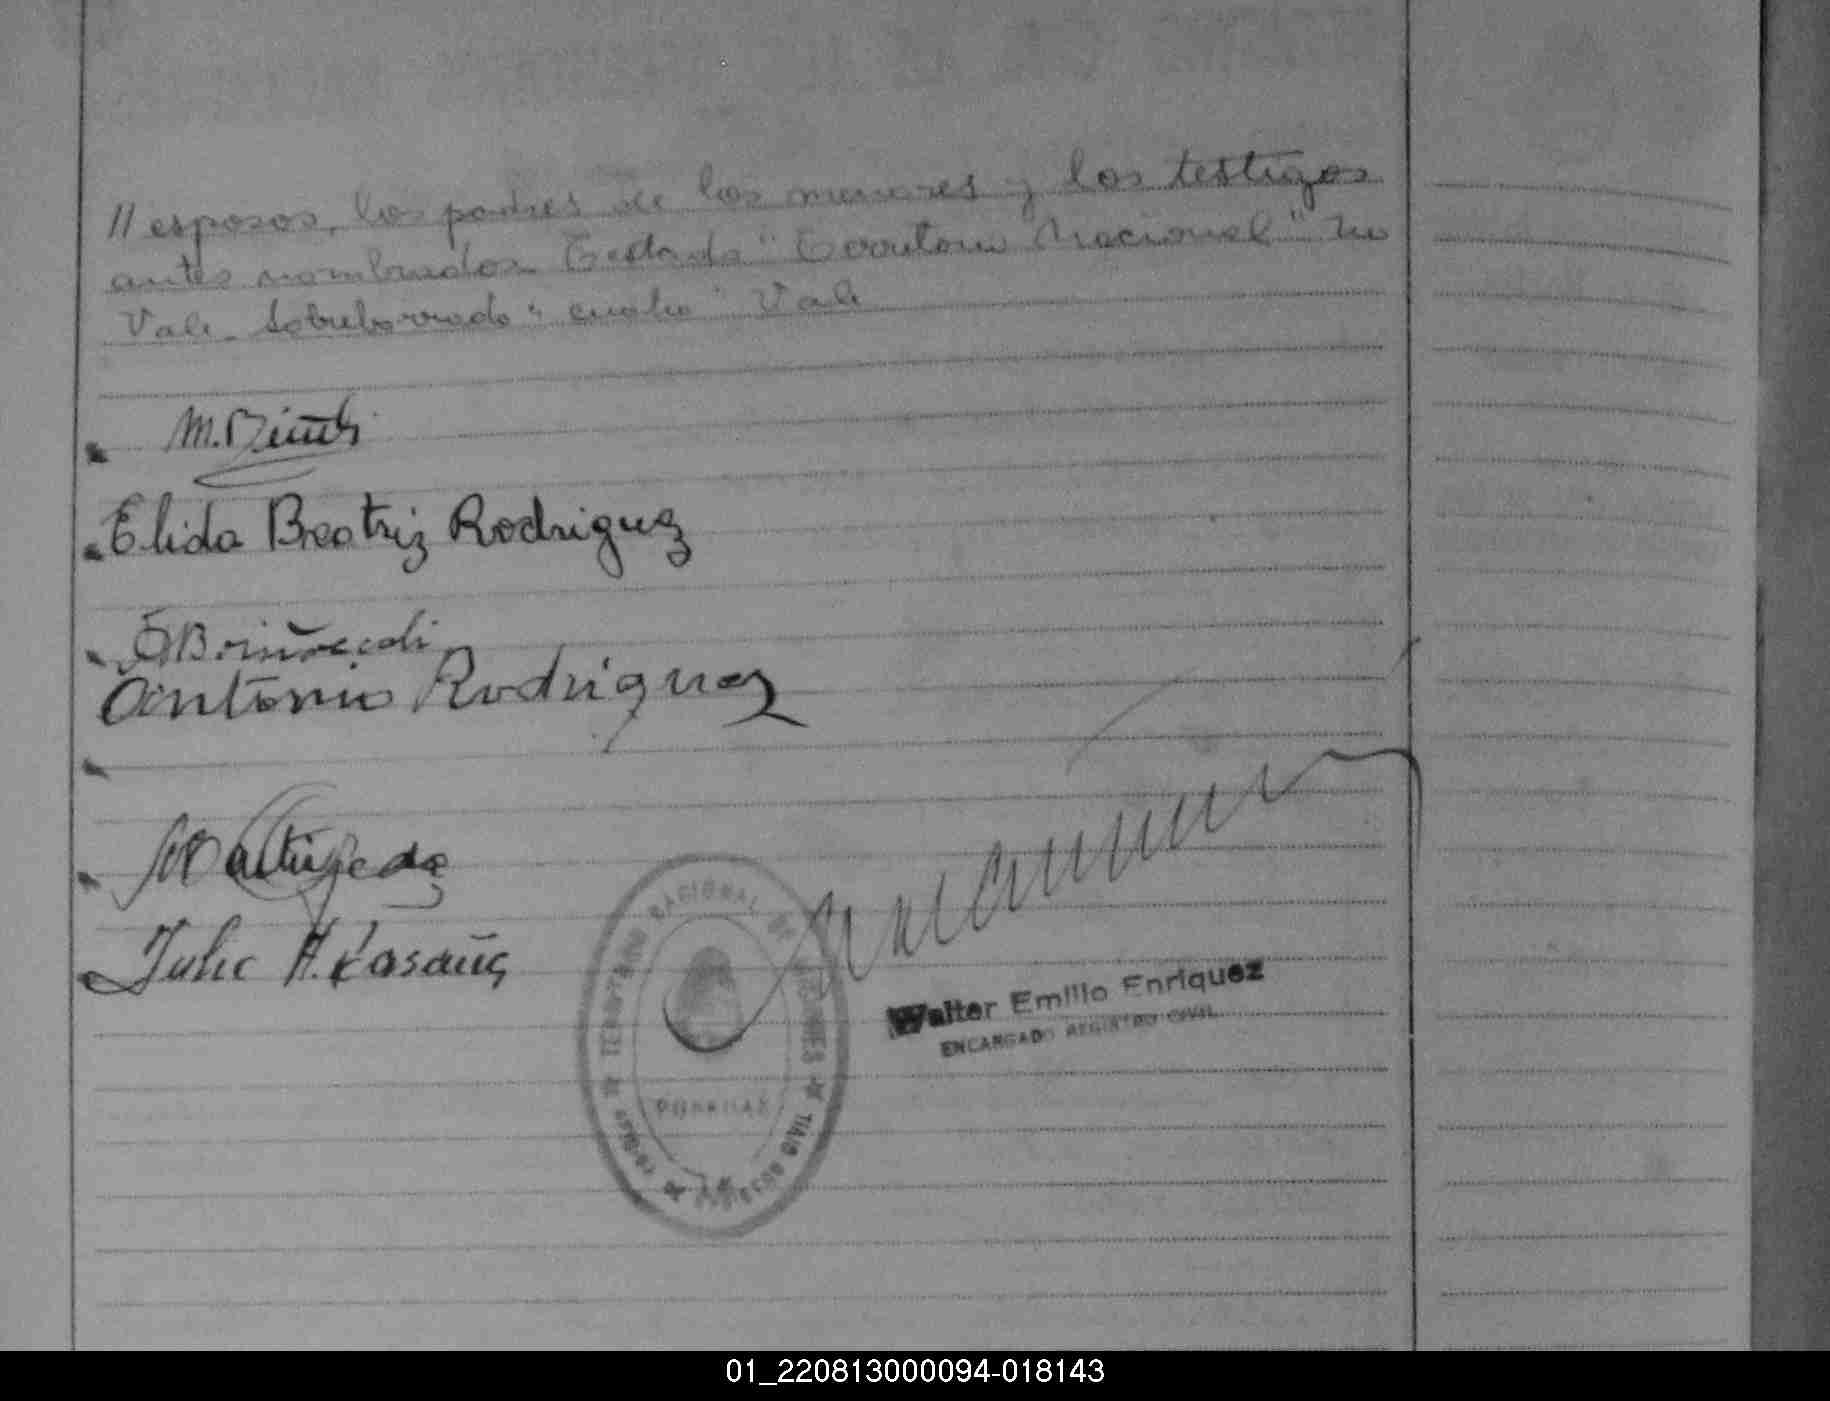 // esposos, los padres de los menores y los testigos
antes nombrados. Testado "Territorio Nacional" No
Vale. Sobreborrado "cuatro" Vale
Elida Beatriz Rodriguez
Antonio Rodriguez
Julio A.
TERRITORIO NACIONAL DE MISIONES
POSADAS
REGISTRO CIVIL
Walter Emilio Enriquez
ENCARGADO REGISTRO CIVIL
01_220813000094-018143